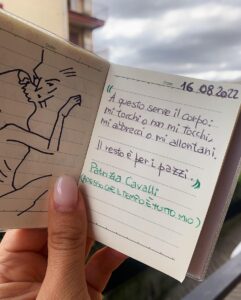 16.08.2022
"A questo serve il corpo:
mi tocchi o non mi tocchi,
mi abbracci o mi allontani.
Il resto è per i pazzi."
Patrizia Cavalli
(PENSAVO CHE IL TEMPO È TUTTO MIO)